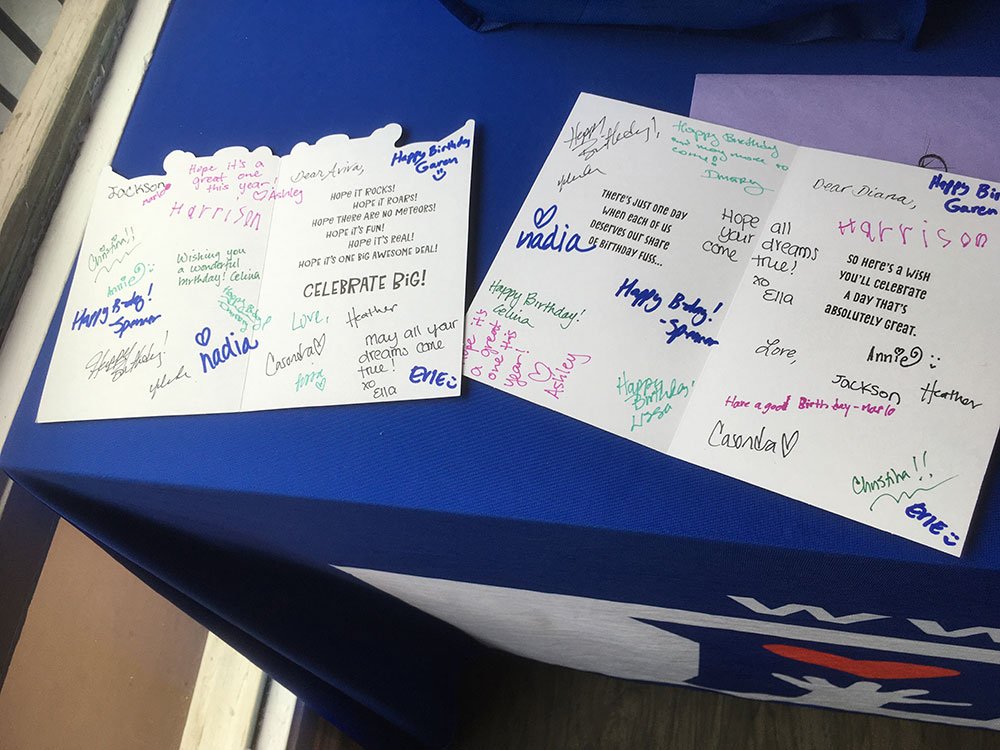 Jackson
Mario
Hope it's a
great one
this year!
♡ Ashley
Harrison
Christina!!
Annie
Wishing you
a wonderful
birthday! Celina
Happy B-day!
- Spenser
Happy
Birthday!
nadia
Happy
Birthday!
Dear Avira,
Happy Birthday
Garen
HOPE IT ROCKS!
HOPE IT ROARS!
HOPE THERE ARE NO METEORS!
HOPE IT'S FUN!
HOPE IT'S REAL!
HOPE IT'S ONE BIG AWESOME DEAL!
CELEBRATE BIG!
Love,
Heather
Casondra ♡
may all your
dreams come
true!
xo
Ella
Evie
Happy
Birthday!
Happy Birthday
and may more to
come!!
THERE'S JUST ONE DAY
WHEN EACH OF US
DESERVES OUR SHARE
OF BIRTHDAY FUSS...
nadia
Hope all
your dreams
come true!
xo
Ella
Happy Birthday!
Celina
Hope it's
a great
one this
year!
♡ Ashley
Happy B-day!
- Spenser
Happy
Birthday!
Dear Diana,
Happy Bir
Garen
Harrison
SO HERE'S A WISH
YOU'LL CELEBRATE
A DAY THAT'S
ABSOLUTELY GREAT.
Annie
Love,
Jackson
Heather
Have a good Birthday - Mario
Casondra ♡
Christina!!
Evie